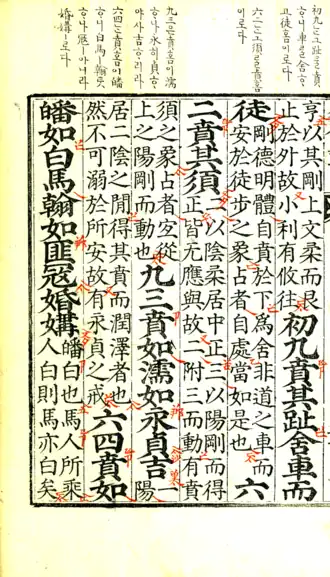 初九ᄂᆞᆫ그趾ᄅᆞᆯ賁
ᄒᆞ니車ᄅᆞᆯ舍ᄒᆞ
고徒홈이로다
六二ᄂᆞᆫ그須ᄅᆞᆯ賁홈
이로다
九三은賁홈이濡
ᄒᆞ나永히貞ᄒᆞ
야사吉ᄒᆞ리라
六四ᄂᆞᆫ賁홈이皤
ᄒᆞ니白馬ㅣ翰ᄐᆞᆺ
ᄒᆞ니寇ㅣ아니라
婚媾ㅣ로다
亨以其剛上文柔而艮
止於外故小利有攸往
初九賁其趾舍車而
徒
剛德明體自賁於下爲舍非道之車而
安於徒步之象占者自處當如是也
六
二賁其須
二以陰柔居中正三以陽剛而得
正皆无應與故二附三而動有賁
須之象占者宜從
上之陽剛而動也
九三賁如濡如永貞吉
一
陽
居二陰之間得其賁而潤澤者也
然不可溺於所安故有永貞之戒
六四賁如
皤如白馬翰如匪寇婚媾
皤白也馬人所乘
人白則馬亦白矣